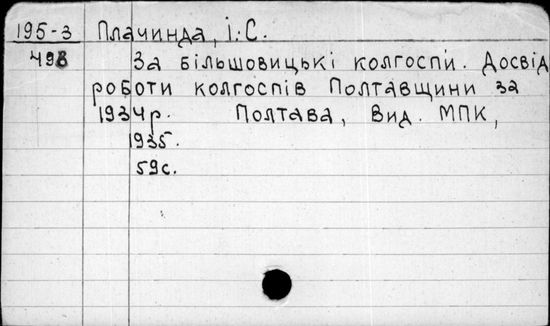 195-3 Плачинда, І. С.
498 За більшовицькі колгоспи. Досвід
роботи колгоспів Полтавщини за
1934р. Полтава, Вид. МПК,
1935.
59с.